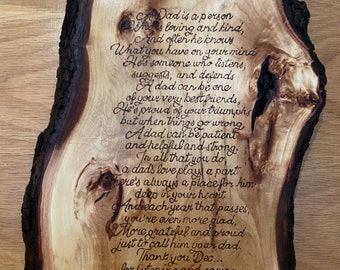 A Dad is a person
who's loving and kind,
And often he knows
What you have on your mind
He's someone who listens,
suggests, and defends
A dad can be one
of your very best friends,
He's proud of your triumphs
but when things go wrong
A dad can be patient
and helpful and strong
In all that you do
a dad's love plays a part
There's always a place for him
deep in your heart
And each year that passes,
you're even more glad,
More grateful and proud
just to call him your dad.
Thank you Dec...
for listening and caring